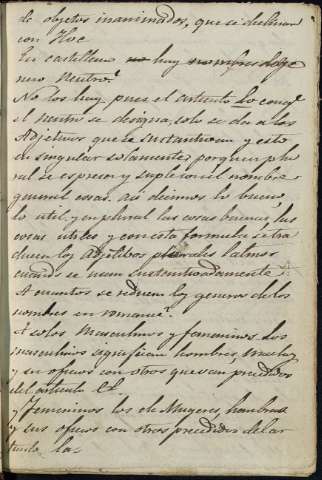 de objetos inanimados, que se declinan
con Hoc
En castellano no hay nombres del ge
nero Neutro?
No los hay, pues el articulo lo conq.e
el neutro se designa, solo se da a los
Adjetivos que se sustantivan y esto
en singular solamente; porque en plu
ral se espresa y suple con el nombre
general cosas. asi decimos lo bueno
lo util, y en plural las cosas buenas, las
cosas utiles y con esta formula se tra
ducen los adjetibos plurales latinos
cuando se usan sustantivadamente
A cuantos se reducen los generos de los
nombres en romance?
A solos Masculinos y femeninos. Los
masculinos significan hombres, machos
y su oficios con otros que van precedidos
del articulo El
y Femeninos los de Mugeres, hembras
y sus oficios con otros precedidos del ar
ticulo, la